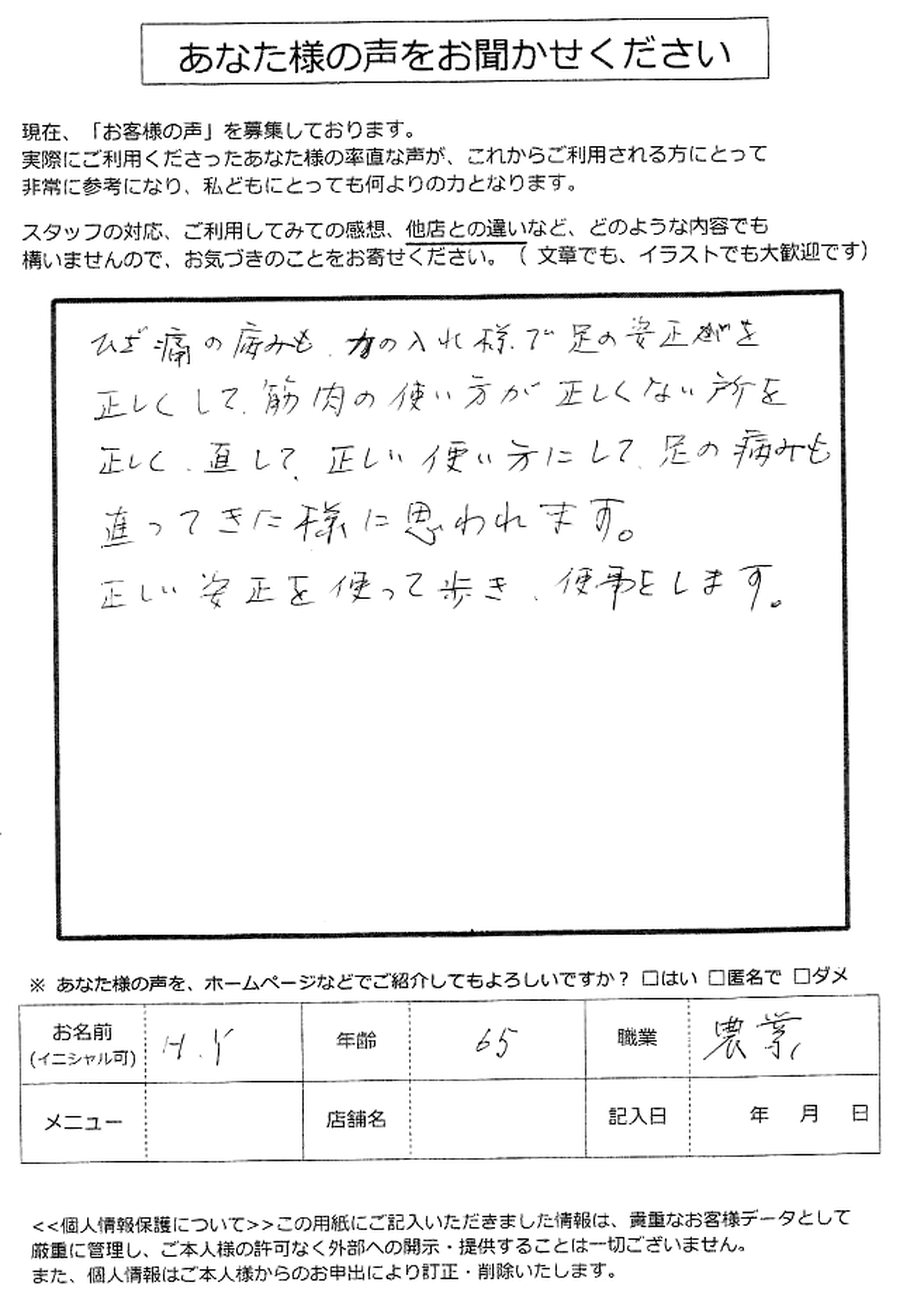 あなた様の声をお聞かせください
現在、「お客様の声」を募集しております。
実際にご利用くださったあなた様の率直な声が、これからご利用される方にとって
非常に参考になり、私どもにとっても何よりの力となります。
スタッフの対応、ご利用してみての感想、他店との違いなど、どのような内容でも
構いませんので、お気づきのことをお寄せください。（ 文章でも、イラストでも大歓迎です）
ひざ痛の病みも、力の入れ様で足の姿正を
正しくして、筋肉の使い方が正しくない所を
正しく、直して、正しい使い方にして、足の病みも
直ってきた様に思われます。
正しい姿正を使って歩き、使事をします。
※ あなた様の声を、ホームページなどでご紹介してもよろしいですか？ □はい □匿名で □ダメ
お名前 (イニシャル可) H.Y 年齢 65 職業 農業
メニュー 店舗名 記入日 年 月 日
<<個人情報保護について>>この用紙にご記入いただきました情報は、貴重なお客様データとして
厳重に管理し、ご本人様の許可なく外部への開示・提供することは一切ございません。
また、個人情報はご本人様からのお申出により訂正・削除いたします。